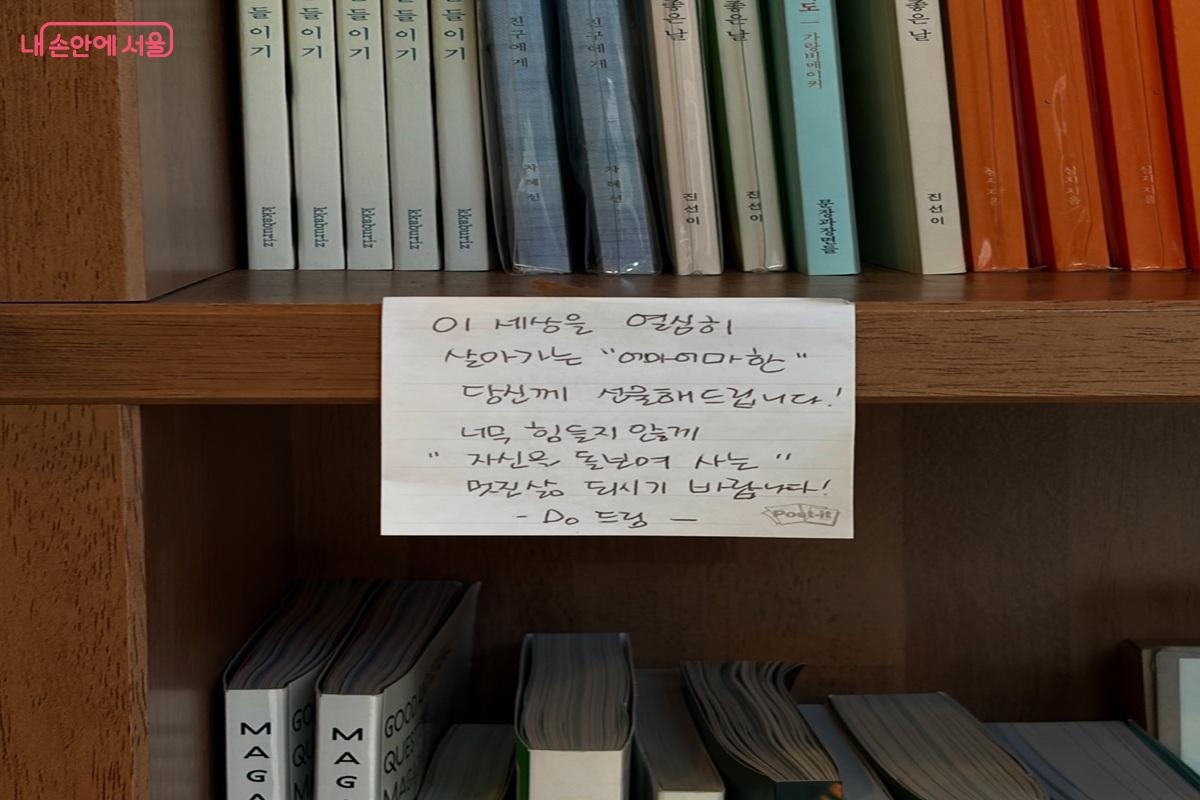 내 손안에 서울
들이기
들이기
들이기
들이기
들이기
kkaburiz
kkaburiz
kkaburiz
kkaburiz
kkaburiz
친구에게
차혜선
친구에게
차혜선
좋은 날
진선이
좋은 날
진선이
도 — 가랑비메이커
문장과장면들
좋은 날
진선이
이 세상을 열심히
살아가는 "어마어마한"
당신께 선물해드립니다!
너무 힘들지 않게
" 자신을 돌보며 사는 "
멋진 삶 되시기 바랍니다!
- Do 드림 -
Post-it
MAGA
MAGA
GOOD
QUEST
MAG